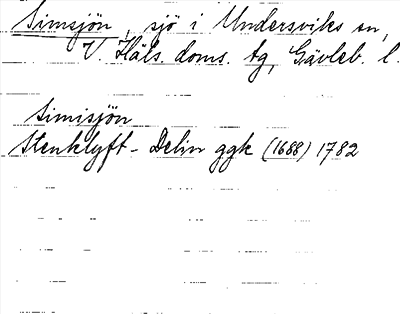 Simsjön, sjö i Undersviks sn,
V. Häls. doms. tg, Gävleb. l.
Simisjön
Stenklyft - Delin ggk (1688) 1782